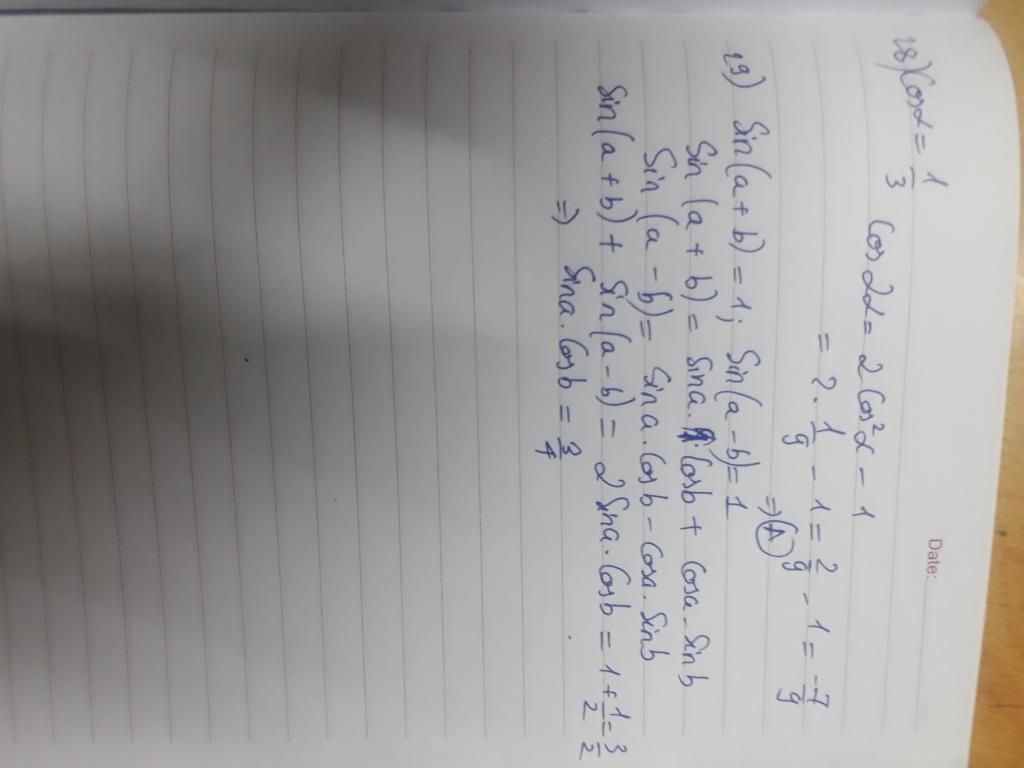 Date:
28) Cosα = 1/3 Cos 2α = 2 Cos²α - 1
= 2 . 1/9 - 1 = 2/9 - 1 = -7/9
=> (A)
29) Sin(a + b) = 1; Sin(a - b) = 1
Sin (a + b) = Sina. Cosb + Cosa. Sinb
Sin (a - b) = Sina. Cosb - Cosa. Sinb
Sin(a + b) + Sin(a - b) = 2 Sina. Cosb = 1 + 1/2 = 3/2
=> Sina. Cosb = 3/4